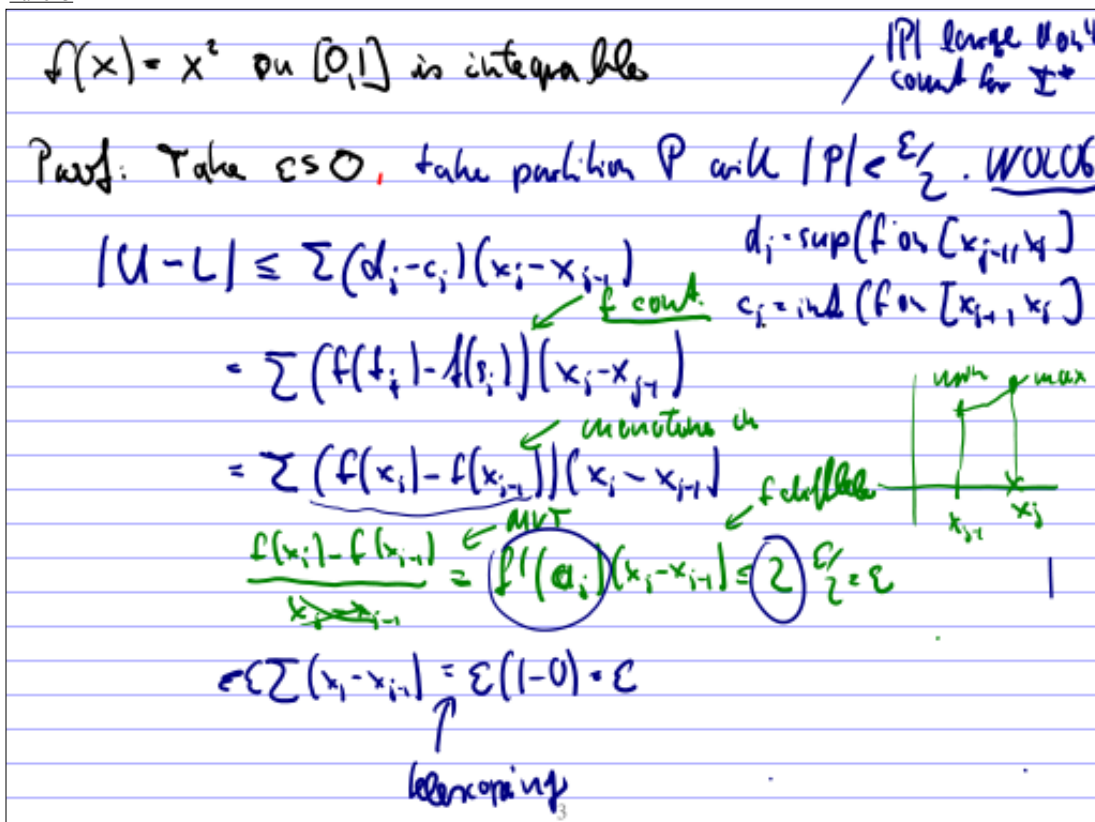 f(x) = x² on [0,1] is integrable
|P| large don't
count for I*
Proof: Take ε>0, take partition P with |P|<ε/2. WOLOG
|U-L| ≤ Σ(d_j-c_j)(x_j-x_{j-1})
d_j = sup(f on [x_{j-1}, x_j]
c_j = inf(f on [x_{j-1}, x_j]
f cont.
= Σ(f(t_j)-f(s_j))(x_j-x_{j-1})
min max
monotone
= Σ(f(x_j)-f(x_{j-1}))(x_j-x_{j-1})
f diffble
x_{j-1} x_j
MVT
f(x_j)-f(x_{j-1}) = f'(a_j)(x_j-x_{j-1}) ≤ 2 ε/2 = ε
x_j-x_{j-1}
1
<εΣ(x_j-x_{j-1}) = ε(1-0) = ε
telescoping
3